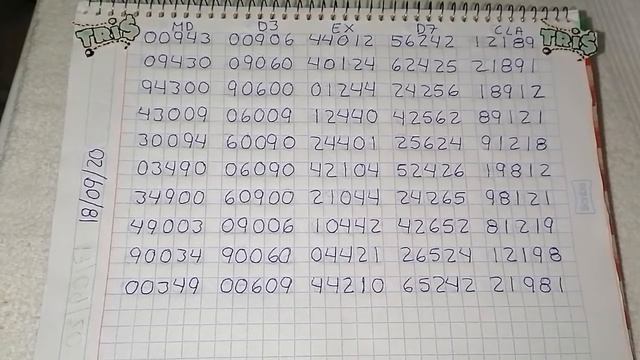 MD D3 EX D7 CLA
TRIS 00943 00906 44012 56242 12189 TRIS
09430 09060 40124 62425 21891
94300 90600 01244 24256 18912
43009 06009 12440 42562 89121
30094 60090 24401 25624 91218
03490 06090 42104 52426 19812
34900 60900 21044 24265 98121
49003 09006 10442 42652 81219
90034 90060 04421 26524 12198
00349 00609 44210 65242 21981
18/09/20